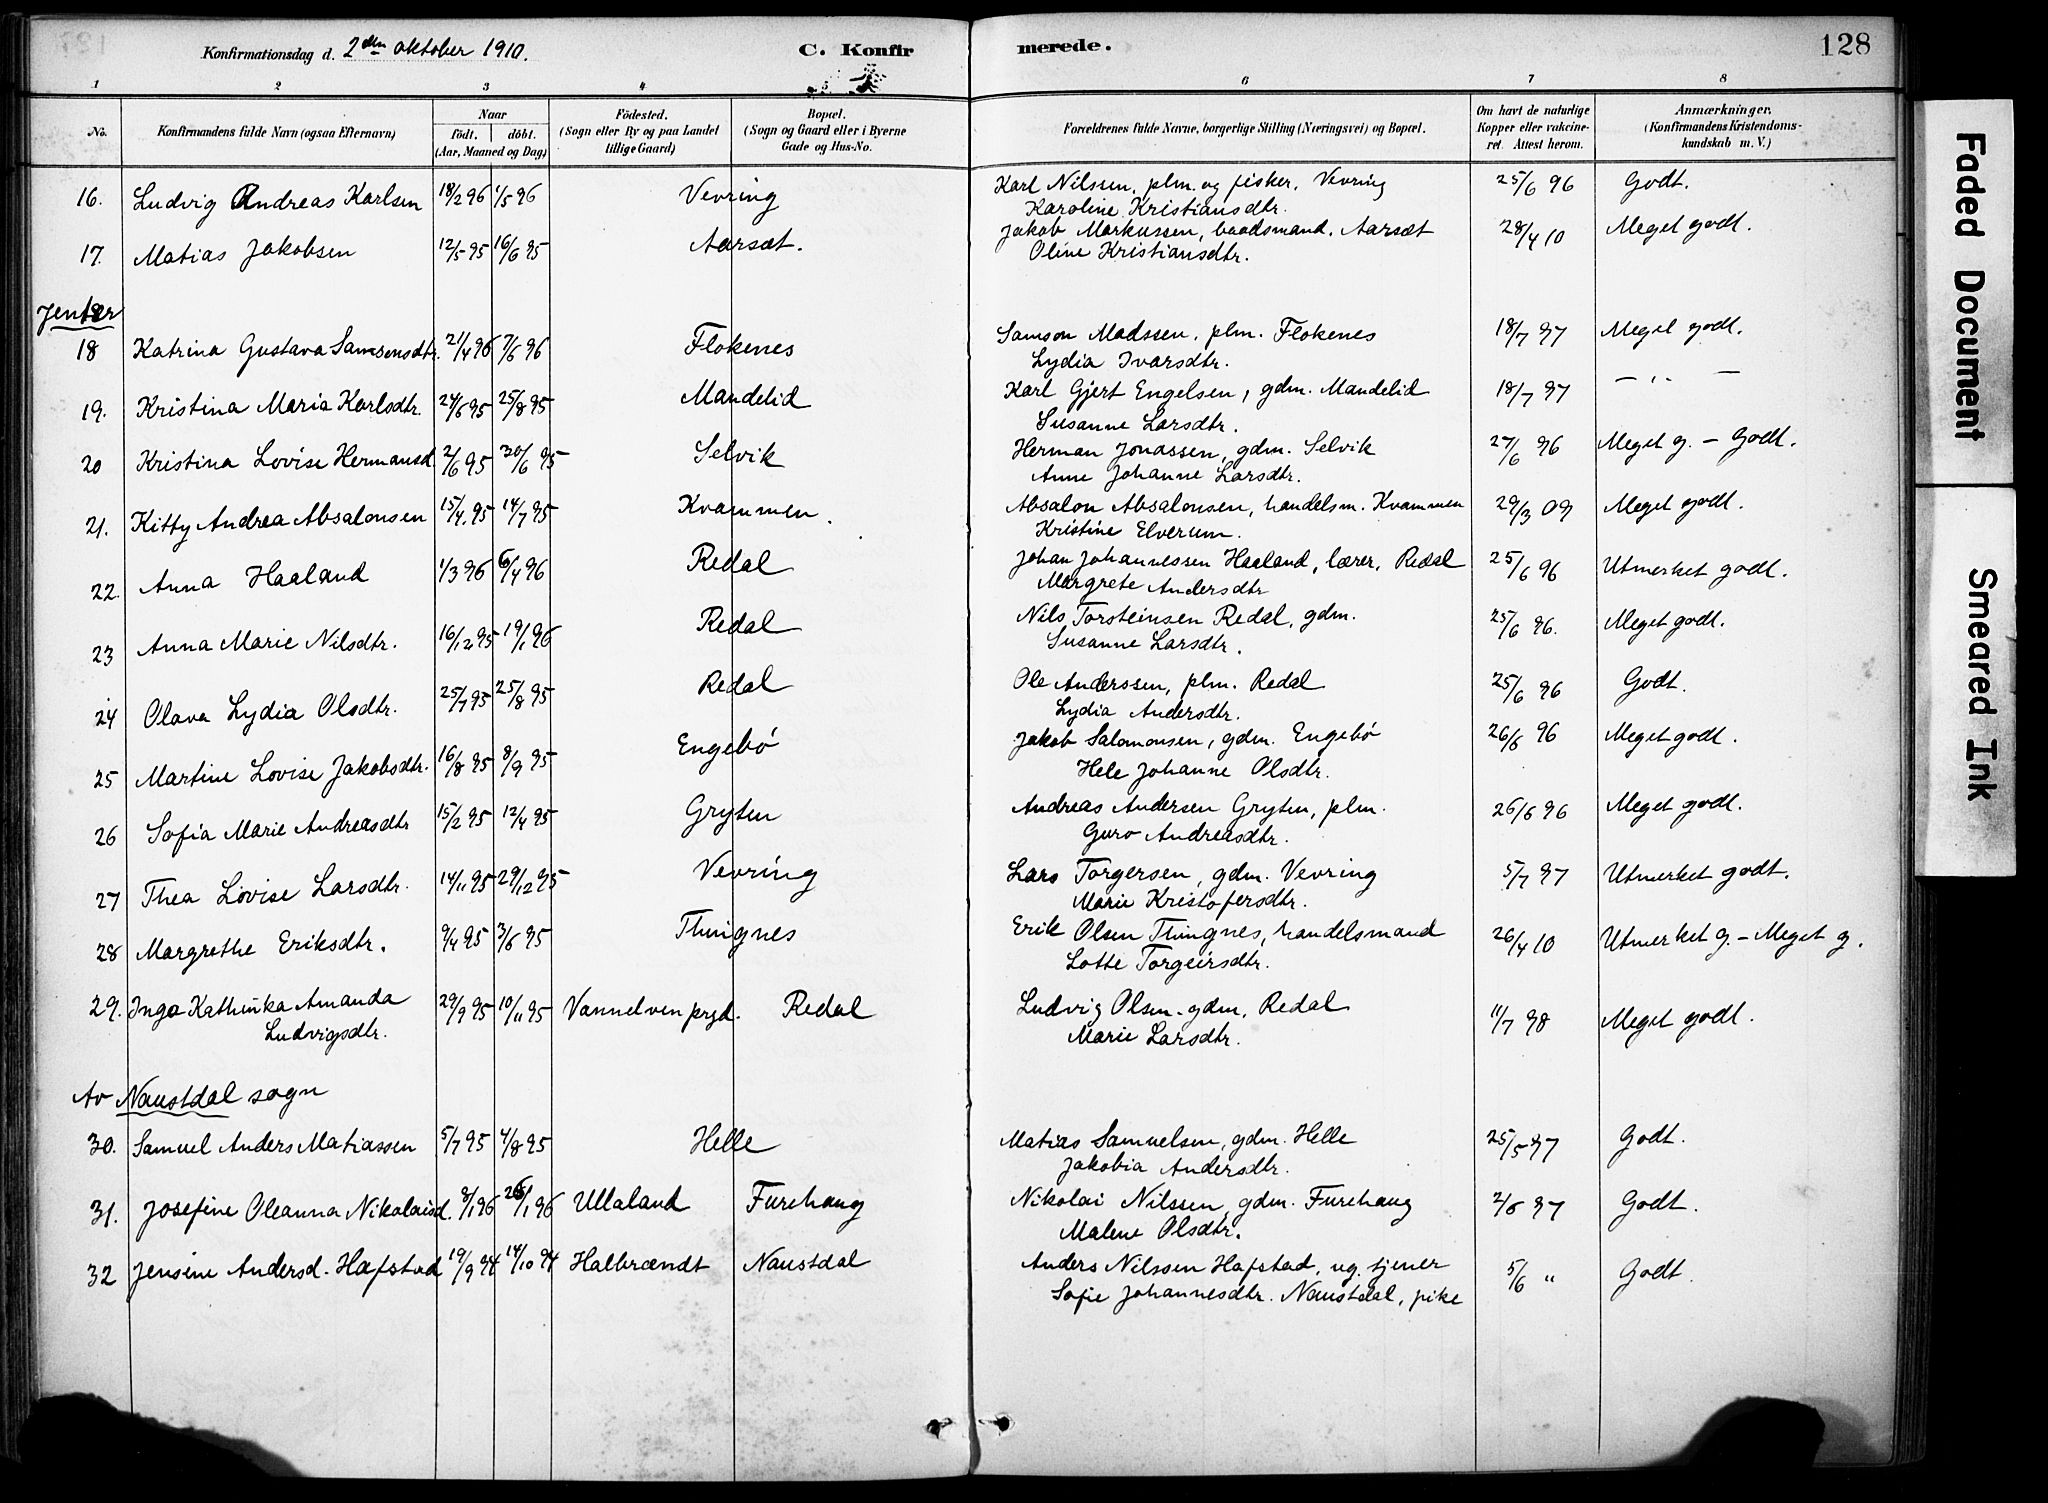 Konfirmationsdag d. 2den oktober 1910. C. Konfirmerede. 128
1 2 3 4 5 6 7 8
No. Konfirmandens fulde Navn (ogsaa Efternavn) Naar født. døbt. (Aar, Maaned og Dag) Fødested. (Sogn eller By og paa Landet tillige Gaard) Bopæl. (Sogn og Gaard eller i Byerne Gade og Hus-No. Forældrenes fulde Navne, borgerlige Stilling (Næringsvei) og Bopæl. Om havt de naturlige Kopper eller vakcineret. Attest herom. Anmærkninger. (Konfirmandens Kristendomskundskab m. V.)
16. Ludvig Andreas Karlsen 18/2 96 1/5 96 Vevring Karl Nilssen, plm. og fisker, Vevring 25/6 96 Godt.
Karoline Kristiansdtr.
17. Matias Jakobsen 12/5 95 16/6 95 Aarsæt. Jakob Markussen, baadsmand. Aarsæt 28/4 10 Meget godt.
Oline Kristiansdtr.
Jenter
18 Katrina Gustava Samsonsdtr. 21/4 96 7/6 96 Flokenes Samson Madssen, plm. Flokenes 18/7 97 Meget godt.
Lydia Ivarsdtr.
19. Kristina Maria Karlsdtr. 24/6 95 25/8 95 Mandelid Karl Gjert Engelsen, gdm. Mandelid 18/7 97 — „ —
Susanne Larsdtr.
20 Kristina Lovise Hermansd. 2/6 95 30/6 95 Selvik Herman Jonassen, gdm. Selvik 27/6 96 Meget g. – Godt.
Anne Johanne Larsdtr.
21. Kitty Andrea Absalonsen 15/4 95 14/7 95 Kvammen. Absalon Absalonsen, handelsm. Kvammen 29/3 09 Meget godt.
Kristine Elverum.
22. Anna Haaland 1/3 96 6/4 96 Redal Johan Johannessen Haaland, lærer, Redal 25/6 96 Utmerket godt.
Margrete Andersdtr
23 Anna Marie Nilsdtr. 16/12 95 19/1 96 Redal Nils Torsteinsen Redal, gdm. 25/6 96. Meget godt.
Susanne Larsdtr.
24 Olava Lydia Olsdtr. 25/7 95 25/8 95 Redal Ole Anderssen, plm. Redal 25/6 96 Godt.
Lydia Andersdtr.
25 Martine Lovise Jakobsdtr. 16/8 95 8/9 95 Engebø Jakob Salomonsen, gdm. Engebø 26/6 96 Meget godt.
Hele Johanne Olsdtr.
26 Sofia Marie Andreasdtr 15/2 95 12/4 95 Gryten Andreas Andersen Gryten, plm. 26/6 96 Meget godt.
Guro Andreasdtr.
27 Thea Lovise Larsdtr. 14/11 95 29/12 95 Vevring Lars Torgersen, gdm. Vevring 5/7 97 Utmerket godt.
Marie Kristofersdtr.
28 Margrethe Eriksdtr. 9/4 95 3/6 95 Thingnes Erik Olsen Thingnes, handelsmand 26/4 10 Utmerket g. – Meget g.
Lotte Torgeirsdtr.
29. Inga Kathinka Amanda 29/9 95 10/11 95 Vannelven prgd. Redal Ludvig Olsen. gdm, Redal 11/7 98 Meget godt.
Ludvigsdtr. Marie Larsdtr.
Av Naustdal sogn
30. Samuel Anders Matiassen 5/7 95 4/8 95 Helle Matias Samuelsen, gdm. Helle 25/5 97 Godt.
Jakobia Andersdtr.
31. Josefine Oleanna Nikolaisd. 8/1 96 26/1 96 Ullaland Furehaug Nikolai Nilssen, gdm. Furehaug 2/6 97 Godt.
Malene Olsdtr.
32 Jensine Andersd. Hafstad 19/9 94 14/10 94 Halbrændt Naustdal Anders Nilssen Hafstad, ug. tjener 5/6 „ Godt.
Sofie Johannesdtr. Naustdal, pike
Faded Document
Smeared Ink